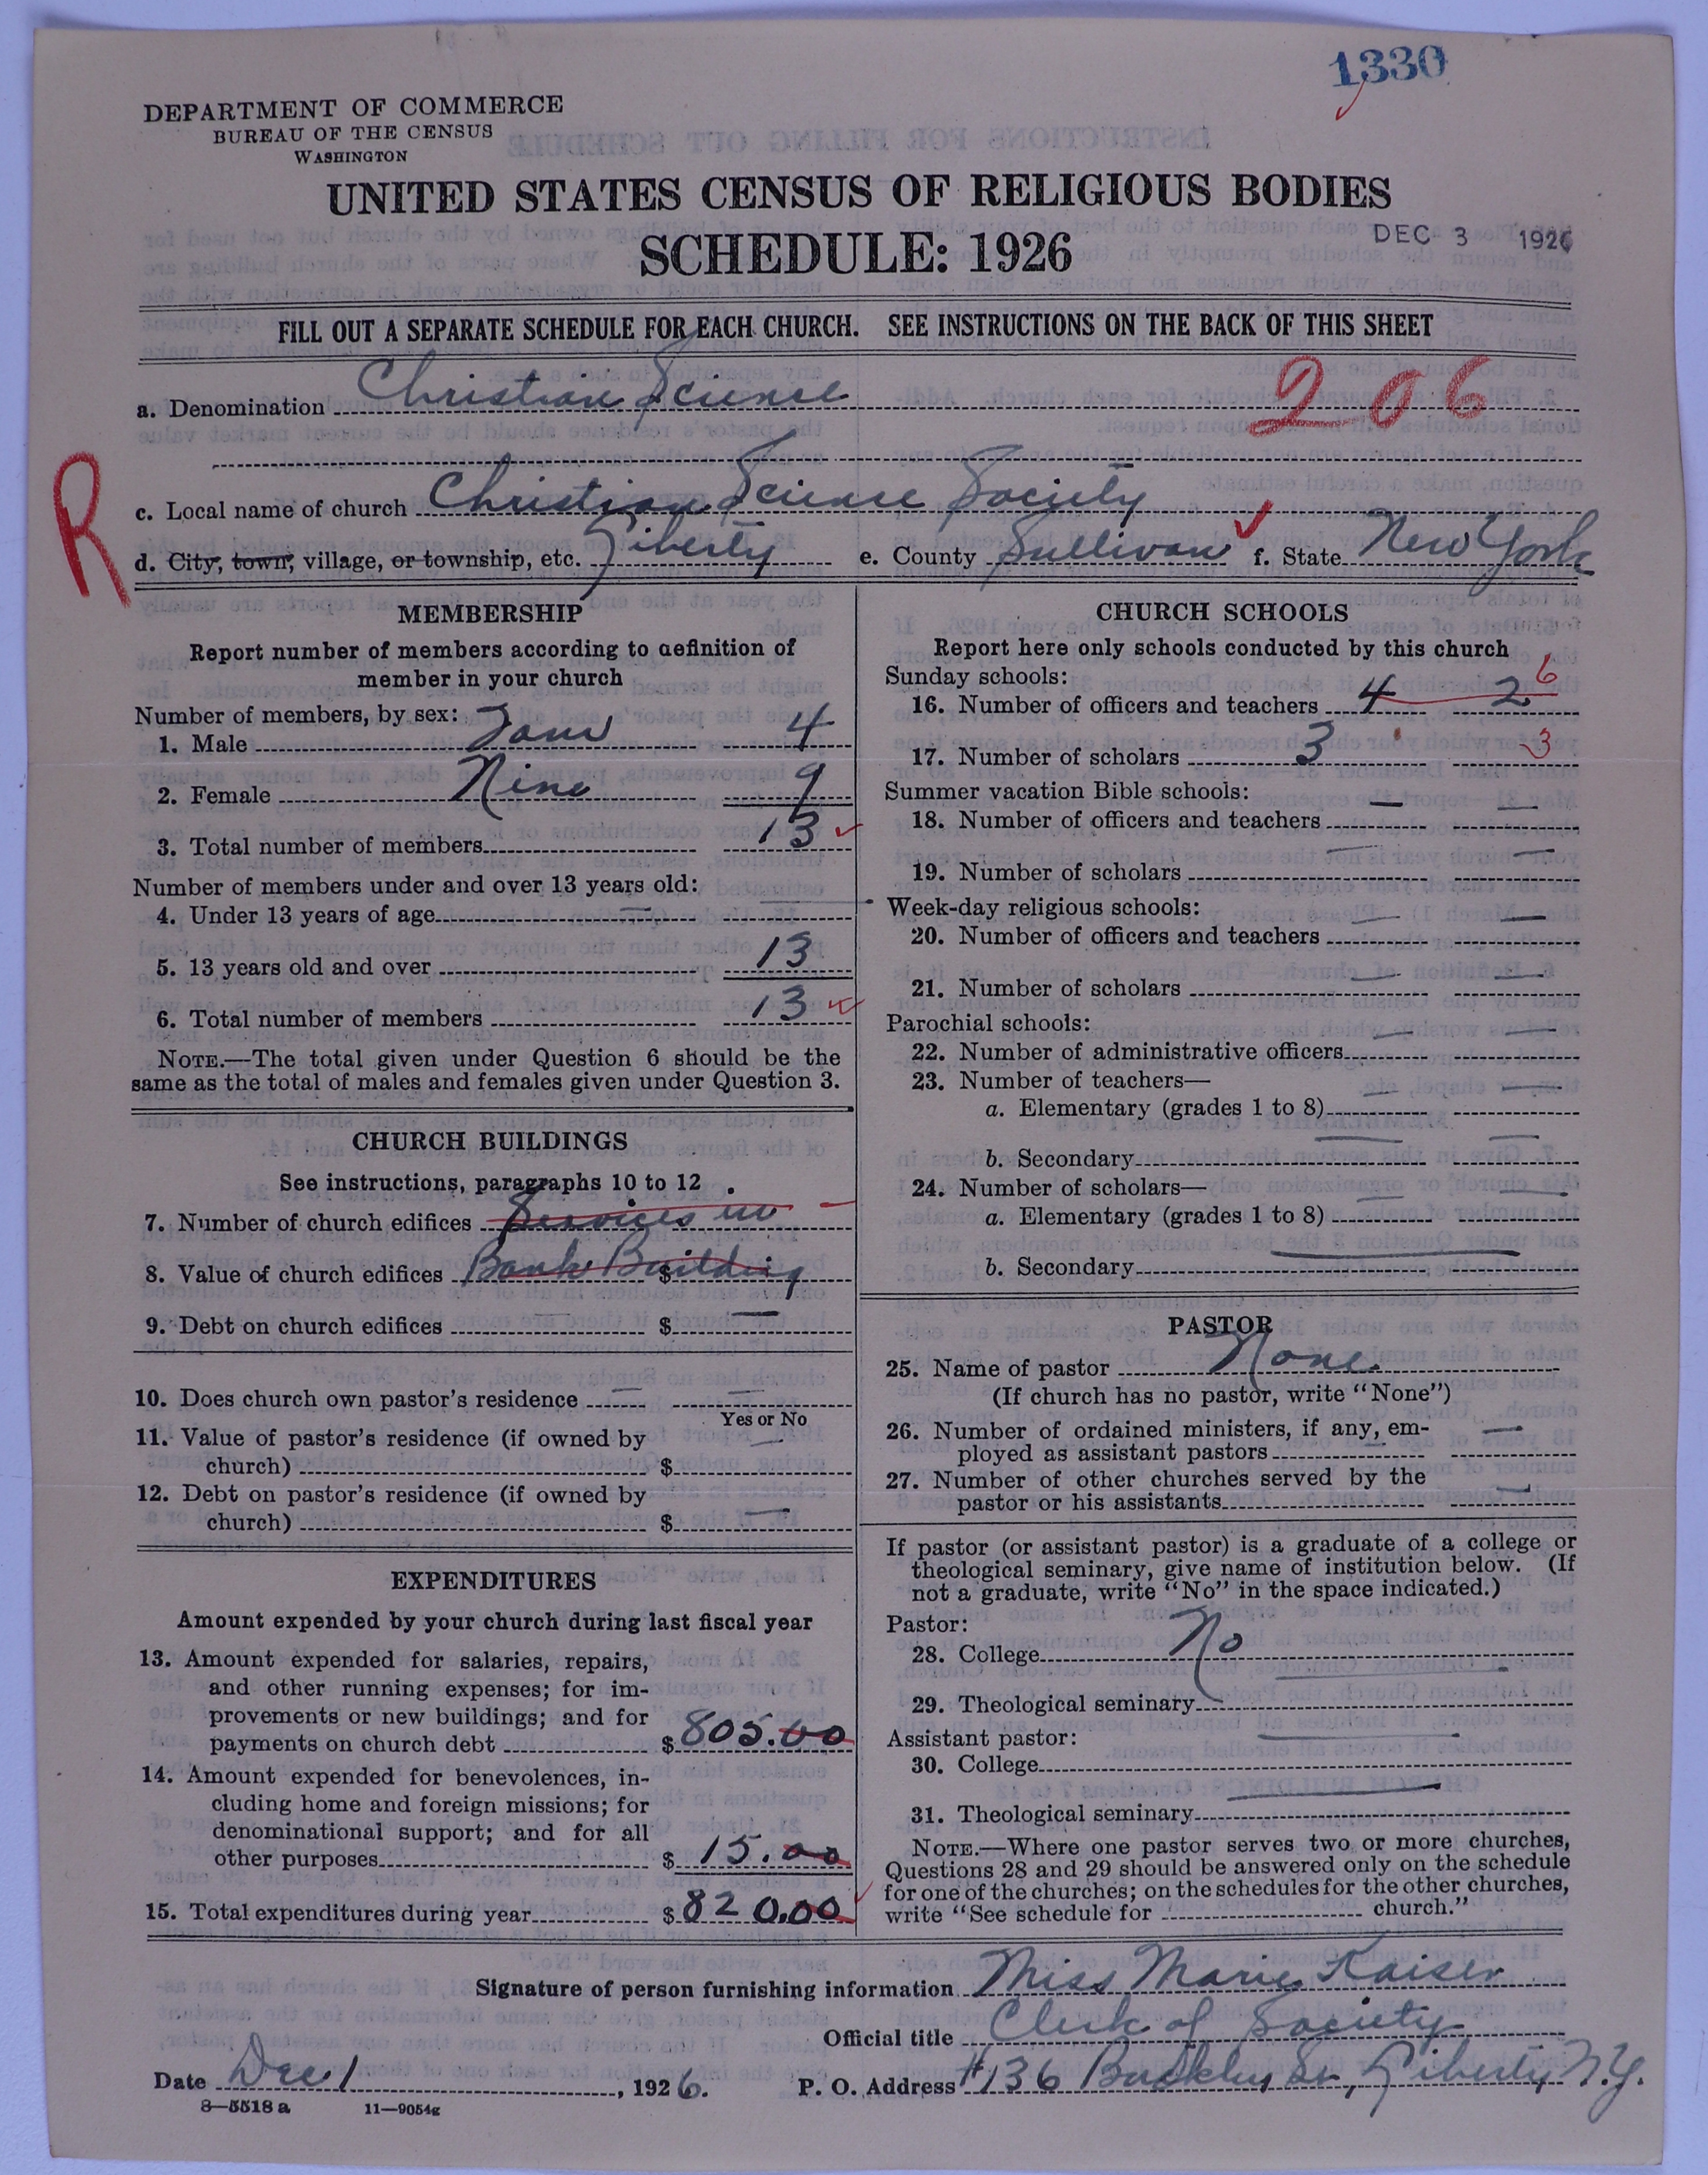 1330
DEPARTMENT OF COMMERCE
BUREAU OF THE CENSUS
WASHINGTON
UNITED STATES CENSUS OF RELIGIOUS BODIES
SCHEDULE: 1926
DEC 3 1926
FILL OUT A SEPARATE SCHEDULE FOR EACH CHURCH. SEE INSTRUCTIONS ON THE BACK OF THIS SHEET
a. Denomination Christian Science 206
R
c. Local name of church Christian Science Society
d. City, town, village, or township, etc. Liberty e. County Sullivan f. State New York
MEMBERSHIP
Report number of members according to definition of
member in your church
Number of members, by sex:
1. Male Four 4
2. Female Nine 9
3. Total number of members 13
Number of members under and over 13 years old:
4. Under 13 years of age —
5. 13 years old and over 13
6. Total number of members 13
NOTE.—The total given under Question 6 should be the
same as the total of males and females given under Question 3.
CHURCH BUILDINGS
See instructions, paragraphs 10 to 12
7. Number of church edifices Services in
8. Value of church edifices Bank Building $
9. Debt on church edifices — $ —
10. Does church own pastor's residence — —
Yes or No
11. Value of pastor's residence (if owned by
church) $ —
12. Debt on pastor's residence (if owned by
church) $ —
EXPENDITURES
Amount expended by your church during last fiscal year
13. Amount expended for salaries, repairs,
and other running expenses; for im-
provements or new buildings; and for
payments on church debt $ 805.00
14. Amount expended for benevolences, in-
cluding home and foreign missions; for
denominational support; and for all
other purposes $ 15.00
15. Total expenditures during year $ 820.00
CHURCH SCHOOLS
Report here only schools conducted by this church
Sunday schools:
16. Number of officers and teachers 4 2 6
17. Number of scholars 3 3
Summer vacation Bible schools:
18. Number of officers and teachers — —
19. Number of scholars — —
Week-day religious schools:
20. Number of officers and teachers — —
21. Number of scholars — —
Parochial schools:
22. Number of administrative officers — —
23. Number of teachers—
a. Elementary (grades 1 to 8) — —
b. Secondary — —
24. Number of scholars—
a. Elementary (grades 1 to 8) — —
b. Secondary —
PASTOR
25. Name of pastor None
(If church has no pastor, write "None")
26. Number of ordained ministers, if any, em-
ployed as assistant pastors — —
27. Number of other churches served by the
pastor or his assistants —
If pastor (or assistant pastor) is a graduate of a college or
theological seminary, give name of institution below. (If
not a graduate, write "No" in the space indicated.)
Pastor:
28. College No
29. Theological seminary —
Assistant pastor:
30. College —
31. Theological seminary —
NOTE.—Where one pastor serves two or more churches,
Questions 28 and 29 should be answered only on the schedule
for one of the churches; on the schedules for the other churches,
write "See schedule for church."
Signature of person furnishing information Miss Marie Kaiser
Official title Clerk of Society
Date Dec 1, 1926. P. O. Address #136 St., Liberty N.Y.
8—5518 a 11—9054g